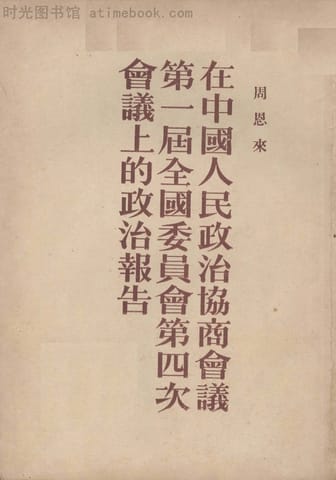 时光图书馆 - atimebook.com
周恩來
在中國人民政治協商會議
第一屆全國委員會第四次
會議上的政治報告